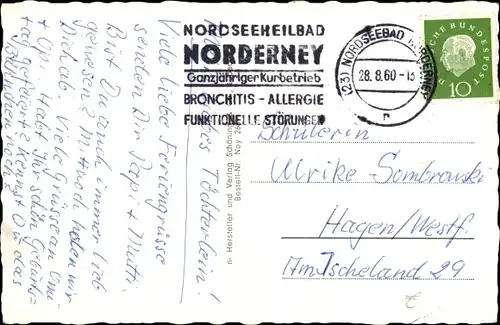 NORDSEEHEILBAD
NORDERNEY
Ganzjähriger Kurbetrieb
BRONCHITIS - ALLERGIE
FUNKTIONELLE STÖRUNGEN
(23) NORDSEEBAD NORDERNEY
28.8.60-13
n
DEUTSCHE BUNDESPOST
10
Töchterlein!
Viele liebe Feriengrüsse
senden Dir Papi + Mutti.
Bist Du auch immer lieb
gewesen? Mittwoch holen wir
Dich ab. Viele Grüsse an Oma
+ Opa. Habt Ihr schön Geburts=
tag gefeiert? Kennst Du das
noch?
Hersteller und Verlag Schöning
Bestell-Nr. Ney
Schülerin
Ulrike Sombrowski
Hagen/Westf.
Am Ischeland 29